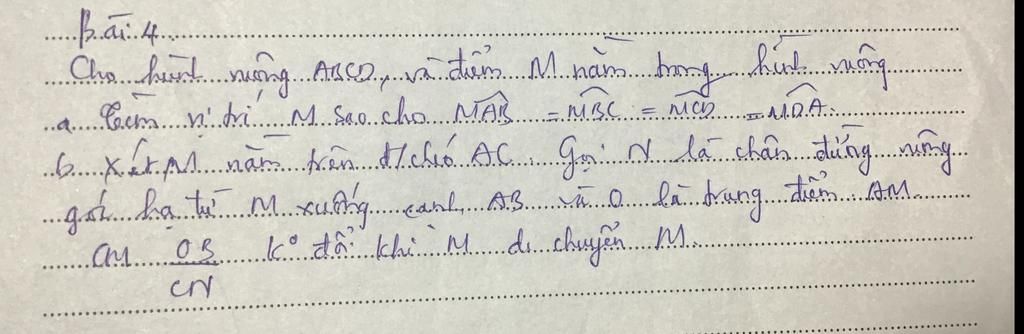 Bài 4
Cho hình vuông ABCD, và điểm M nằm trong hình vuông
a. Tìm vị trí M sao cho MAB = MBC = MCD = MDA.
b. Xét M nằm trên đ/chéo AC. Gọi N là chân đường vuông
góc hạ từ M xuống cạnh AB và O là trung điểm AM.
CM OB k° đổi khi M di chuyển M.
CN